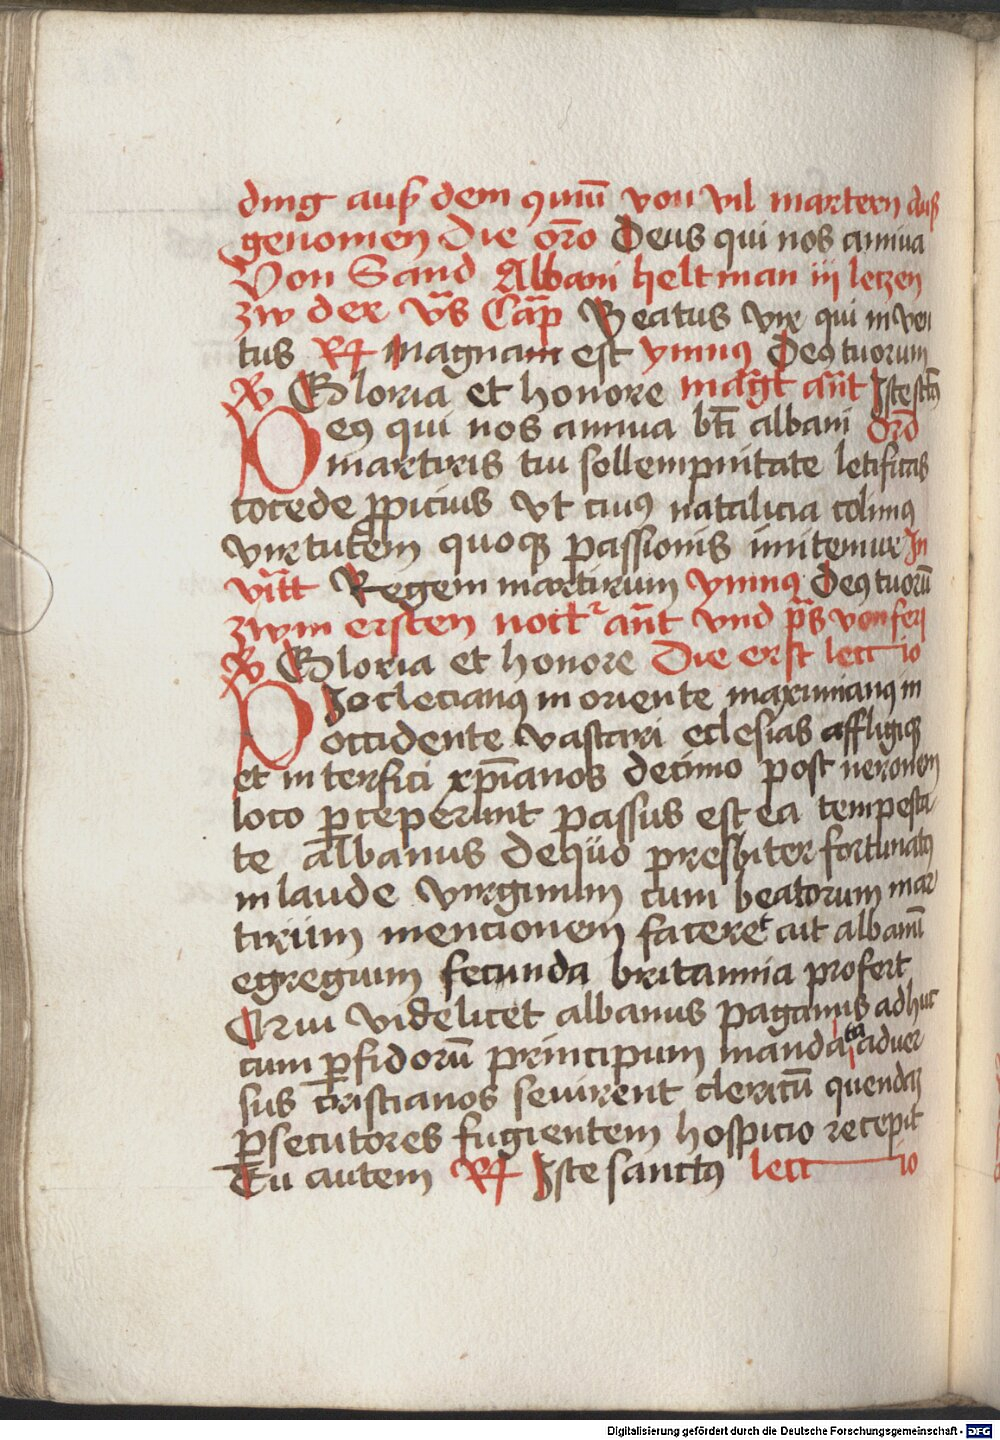 ding auß dem 9muū von vil martern auß
genomen Die oro̅ Deus qui nos annua
Von Sand Albani helt man iij letzen
zw der v̅s Ca̅p Beatus vir qui inven
tus R Magnam est ymnus Deꝯ tuorum
V Gloria et honore mag̅t an̅t Iste sct̅s
Deꝯ qui nos annua bt̅i albani Oro̅
martiris tui sollempnitate letificas
co̅cede ꝓpicius vt cuiꝯ natalicia colimꝯ
virtutem quoqꝫ passionis imitemur In
vi̅tt Regem martirum ymnus Deꝯ tuoru̅
zwm ersten noct̅r an̅t vnd p̅s von feri
V Gloria et honore Die erst lectio
Dioclecianꝯ in oriente maximianꝯ in
occidente vastari eclesias affligiqꝫ
et interfici xp̅ianos decimo post neronem
loco p̲ceperunt passus est ea tempesta
te albanus de quo presbiter fortunatꝯ
in laude virginum cum beatorum mar
tirum mencionem faceret cut albanu̅
egregium fecunda britannia profert
Qui videlicet albanus paganus adhuc
cum ꝑfidoru̅ principum mandata aduer
sus cristianos seuirent clericu̅ quendaꝫ
ꝑsecutores fugientem hospicio recepit
Tu autem R Iste sanctꝯ lectio
Digitalisierung gefördert durch die Deutsche Forschungsgemeinschaft - DFG